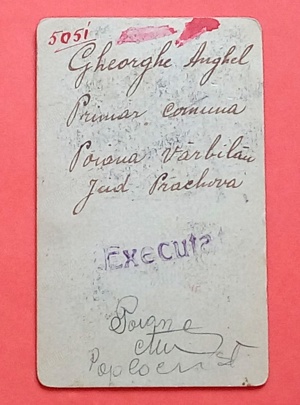 5051
Gheorghe Anghel
Primar comuna
Poiana Vărbilău
Jud Prachova
Executat
Poiana